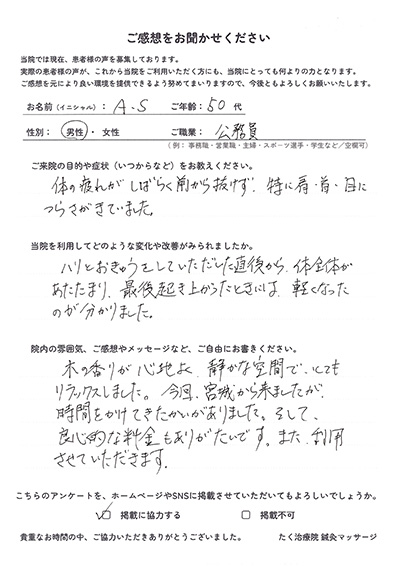 ご感想をお聞かせください
当院では現在、患者様の声を募集しております。
実際の患者様の声が、これから当院をご利用いただく方にも、当院にとっても何よりの力となります。
ご感想を元により良い環境を提供できるよう努めてまいりますので、今後ともよろしくお願いいたします。
お名前(イニシャル): A.S ご年齢: 50 代
性別: 男性・女性 ご職業: 公務員
(例:事務職・営業職・主婦・スポーツ選手・学生など/空欄可)
ご来院の目的や症状(いつからなど)をお教えください。
体の疲れがしばらく前から抜けず、特に肩・首・目に
つらさがきていました。
当院を利用してどのような変化や改善がみられましたか。
ハリとおきゅうをしていただいた直後から、体全体が
あたたまり、最後起き上がったときには、軽くなった
のが分かりました。
院内の雰囲気、ご感想やメッセージなど、ご自由にお書きください。
木の香りが心地よく、静かな空間で、とても
リラックスしました。今回、宮城から来ましたが、
時間をかけてきたかいがありました。そして、
良心的な料金もありがたいです。また、利用
させていただきます。
こちらのアンケートを、ホームページやSNSに掲載させていただいてもよろしいでしょうか。
☑ 掲載に協力する □ 掲載不可
貴重なお時間の中、ご協力いただきありがとうございました。 たく治療院 鍼灸マッサージ